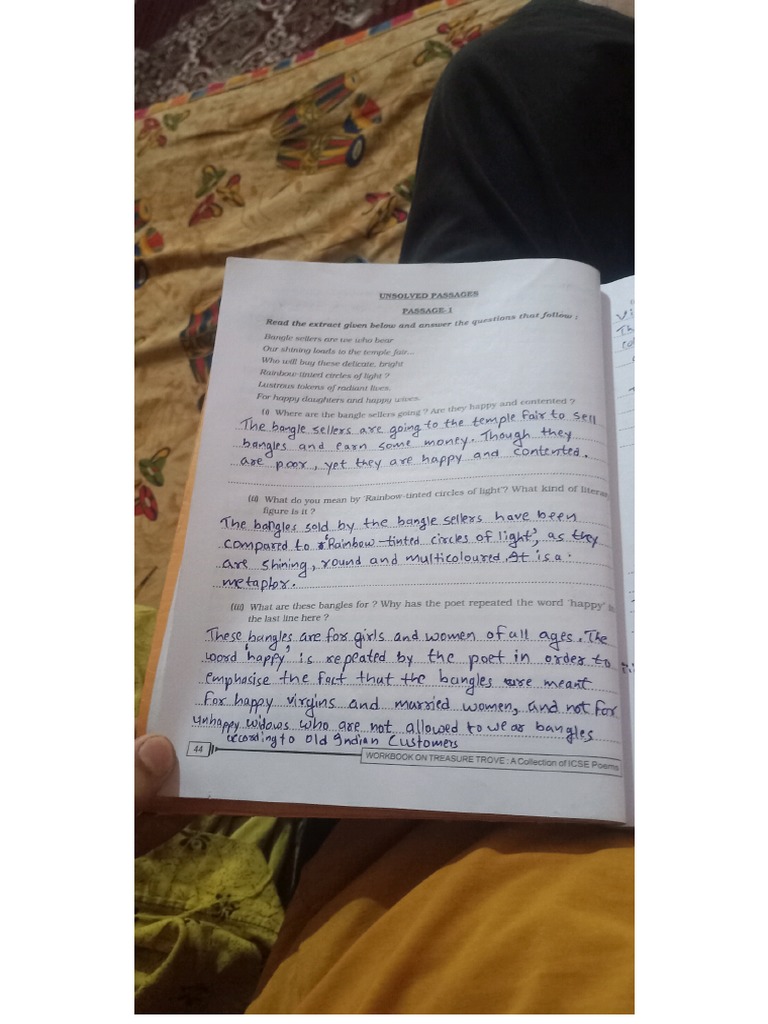 UNSOLVED PASSAGES
PASSAGE-1
Read the extract given below and answer the questions that follow :
Bangle sellers are we who bear
Our shining loads to the temple fair...
Who will buy these delicate, bright
Rainbow-tinted circles of light ?
Lustrous tokens of radiant lives,
For happy daughters and happy wives.
(i) Where are the bangle sellers going ? Are they happy and contented ?
The bangle sellers are going to the temple fair to sell
bangles and earn some money. Though they
are poor, yet they are happy and contented.
(ii) What do you mean by 'Rainbow-tinted circles of light'? What kind of
figure is it ?
The bangles sold by the bangle sellers have been
compared to 'Rainbow-tinted circles of light', as they
are shining, round and multicoloured. It is a
metaphor.
(iii) What are these bangles for ? Why has the poet repeated the word 'happy'
the last line here ?
These bangles are for girls and women of all ages. The
word 'happy' is repeated by the poet in order to
emphasise the fact that the bangles are meant
for happy virgins and married women, and not for
unhappy widows who are not allowed to wear bangles
according to old Indian Customers
44
WORKBOOK ON TREASURE TROVE : A Collection of ICSE Poems